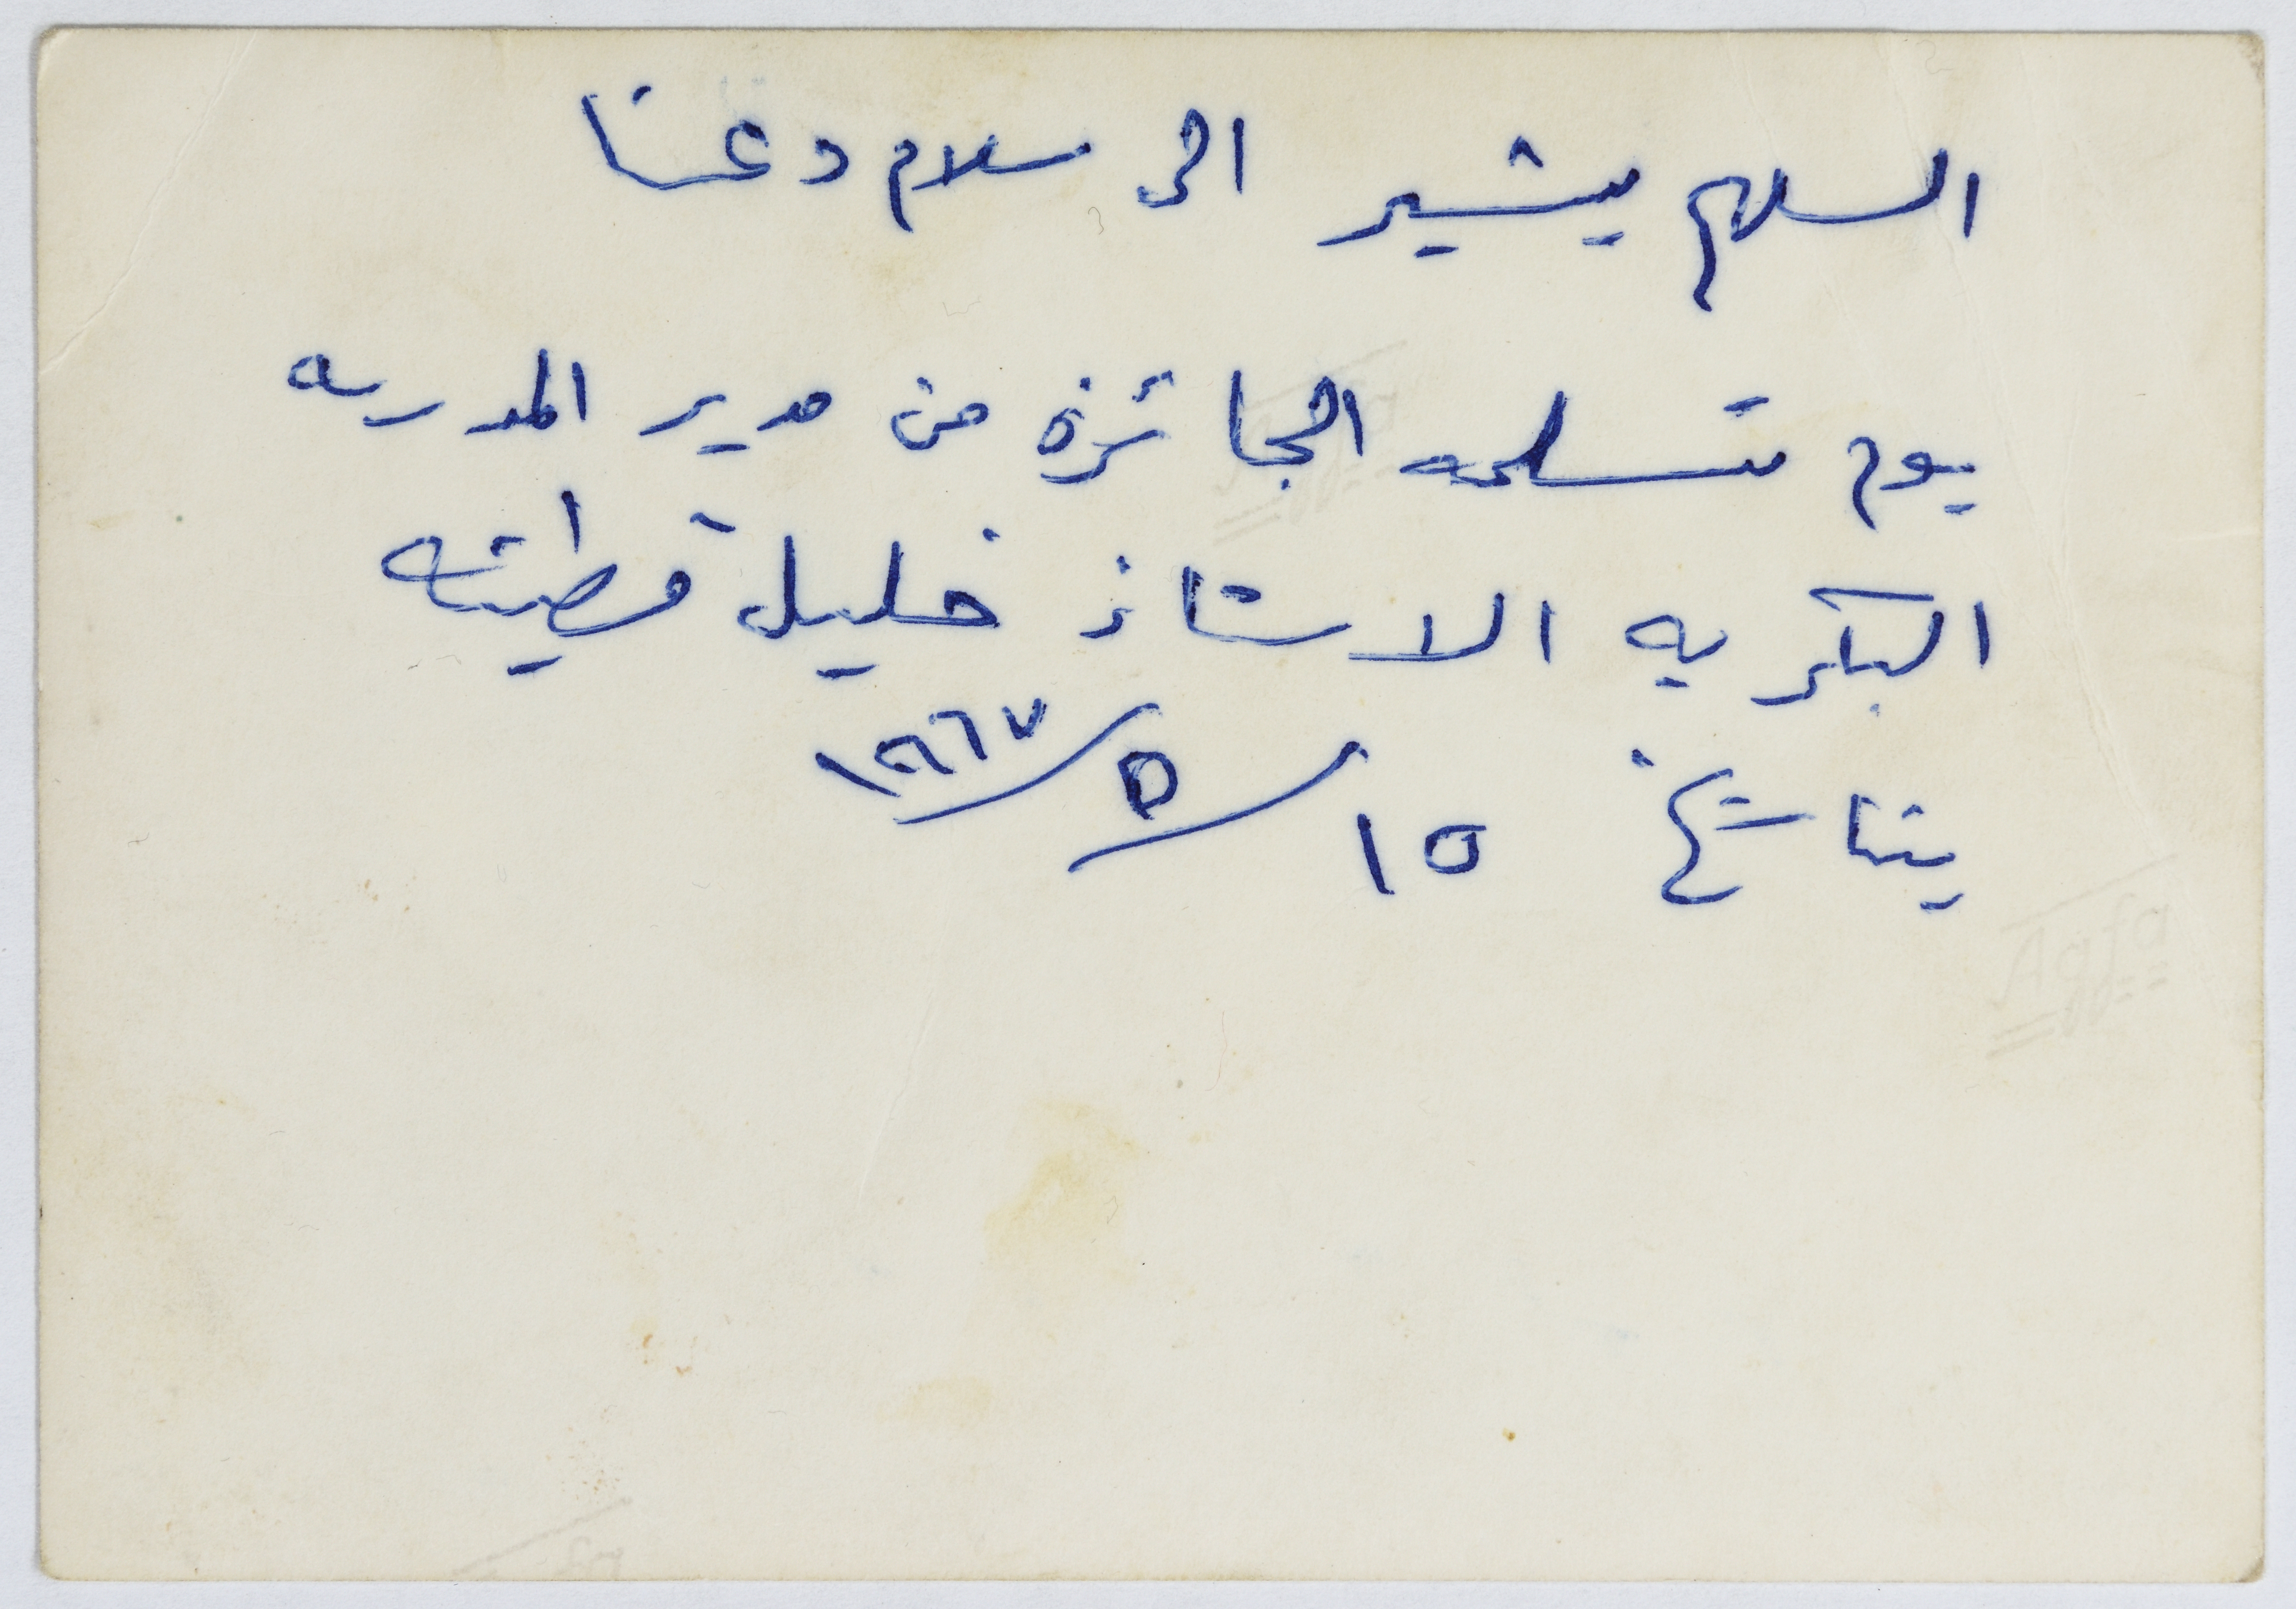 السهم يشير الى سلام دعنا
يوم تسلمه الجائزة من مدير المدرسه
البكريه الاستاذ خليل قطينه
بتاريخ ١٥/٥/١٩٦٧